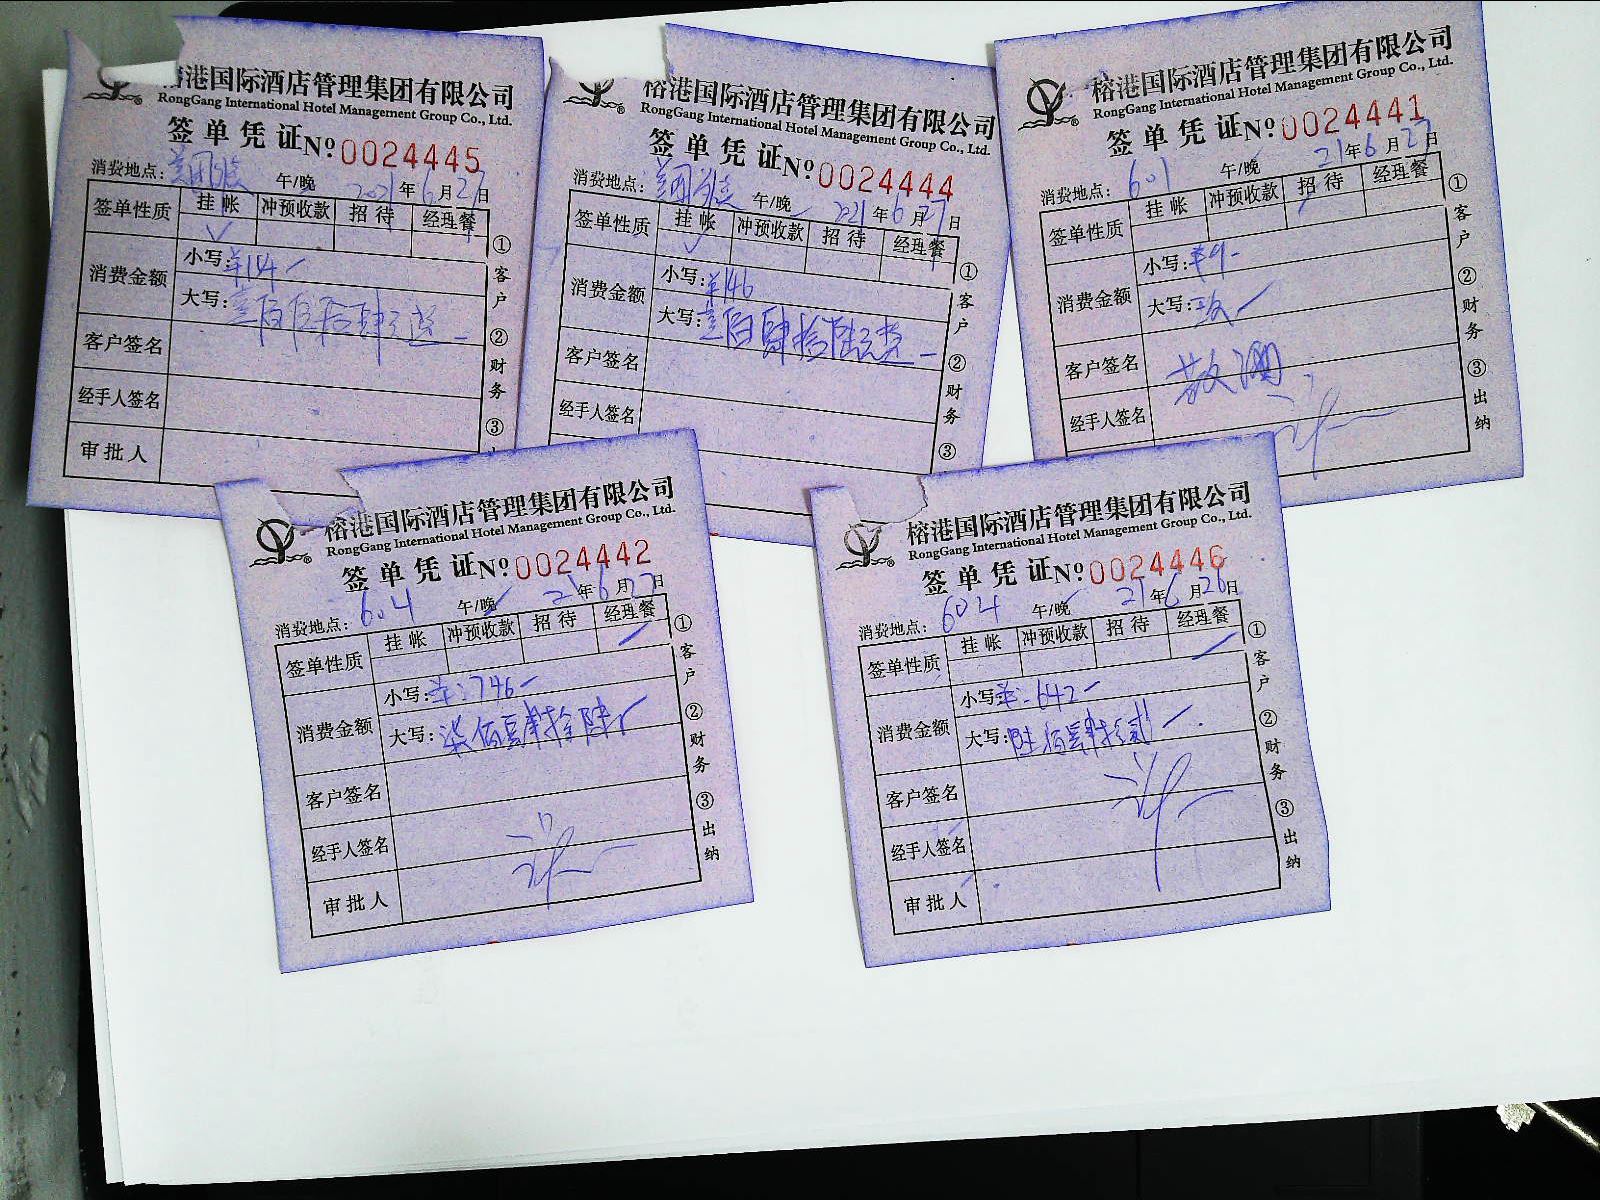 榕港国际酒店管理集团有限公司
RongGang International Hotel Management Group Co., Ltd.
签单凭证 Nº 0024445
消费地点: 美团 午/晚 2021年6月27日
签单性质 挂帐 冲预收款 招待 经理餐
消费金额 小写:
大写: 壹佰伍拾肆元整
客户签名
经手人签名
审批人
①客户 ②财务 ③
港国际酒店管理集团有限公司
RongGang International Hotel Management Group Co., Ltd.
签单凭证 Nº 0024444
消费地点: 美团 午/晚 2021年6月27日
签单性质 挂帐 冲预收款 招待 经理餐
消费金额 小写: ¥146
大写: 壹佰肆拾陆元整
客户签名
经手人签名
①客户 ②财务 ③
榕港国际酒店管理集团有限公司
RongGang International Hotel Management Group Co., Ltd.
签单凭证 Nº 0024441
消费地点: 601 午/晚 21年6月27日
签单性质 挂帐 冲预收款 招待 经理餐
消费金额 小写: ¥9-
大写: 玖
客户签名
经手人签名
①客户 ②财务 ③出纳
榕港国际酒店管理集团有限公司
RongGang International Hotel Management Group Co., Ltd.
签单凭证 Nº 0024442
消费地点: 604 午/晚 21年6月27日
签单性质 挂帐 冲预收款 招待 经理餐
消费金额 小写: ¥:746-
大写: 柒佰肆拾陆
客户签名
经手人签名
审批人
①客户 ②财务 ③出纳
榕港国际酒店管理集团有限公司
RongGang International Hotel Management Group Co., Ltd.
签单凭证 Nº 0024446
消费地点: 604 午/晚 21年6月26日
签单性质 挂帐 冲预收款 招待 经理餐
消费金额 小写: ¥:642-
大写: 陆佰肆拾贰
客户签名
经手人签名
审批人
①客户 ②财务 ③出纳